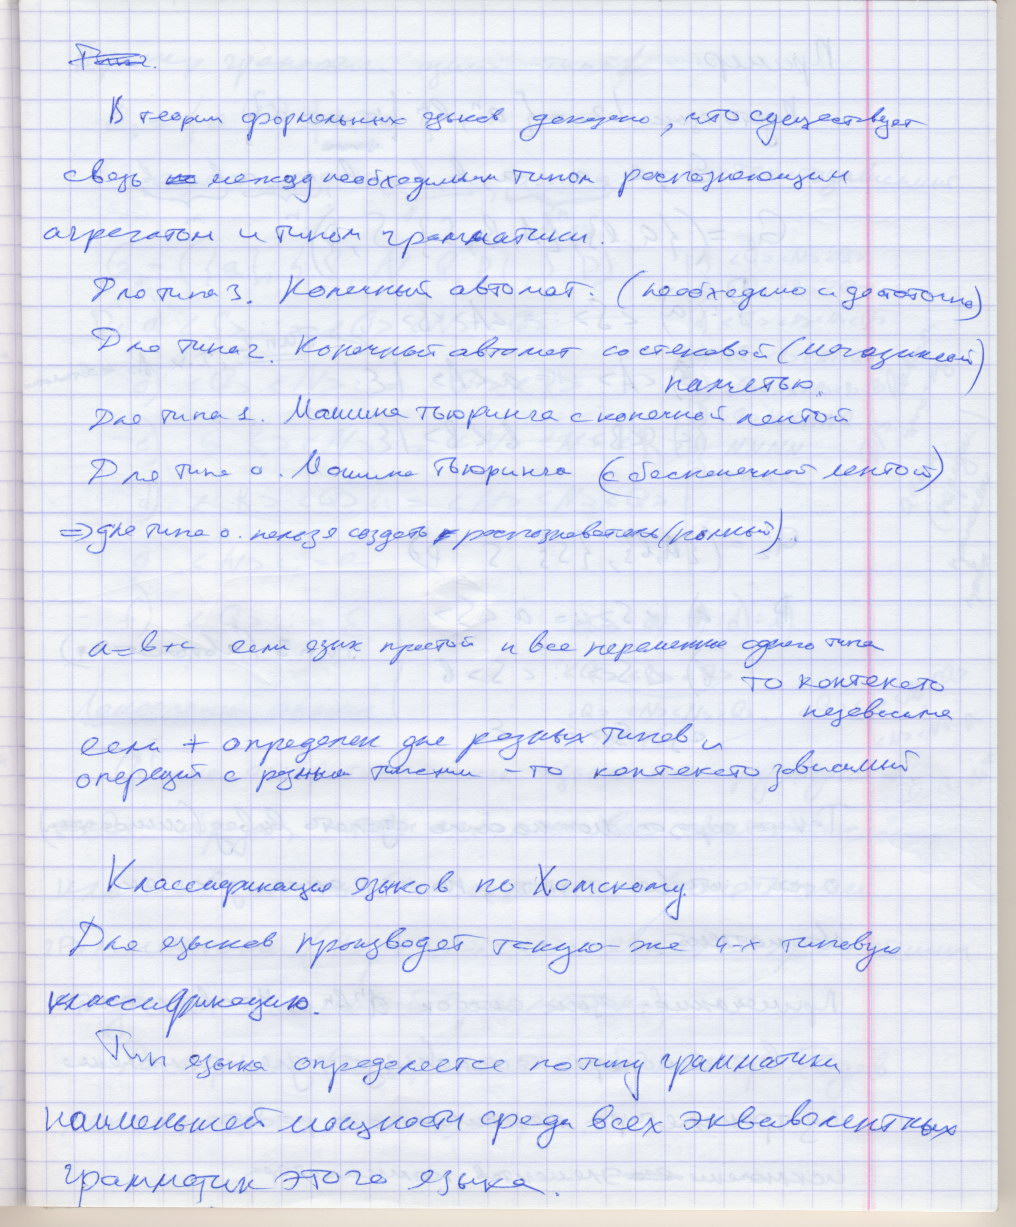 В теории формальных языков доказано, что существует
связь между необходимым типом распознающим
агрегатом и типом грамматики.
Для типа 3. Конечный автомат. (необходимо и достаточно)
Для типа 2. Конечный автомат со стековой (магазинной)
памятью.
Для типа 1. Машина Тьюринга с конечной лентой
Для типа 0. Машина Тьюринга (с бесконечной лентой)
=> для типа 0. нельзя создать распознаватель (полный).
a=b+c если язык простой и все переменные одного типа
то контексто
независима
если + определен для разных типов и
операций с разными типами – то контексто зависимый
Классификация языков по Хомскому.
Для языков производят такую-же 4-х типовую
классификацию.
Тип языка определяется по типу грамматики
наименьшей мощности среди всех эквивалентных
грамматик этого языка.